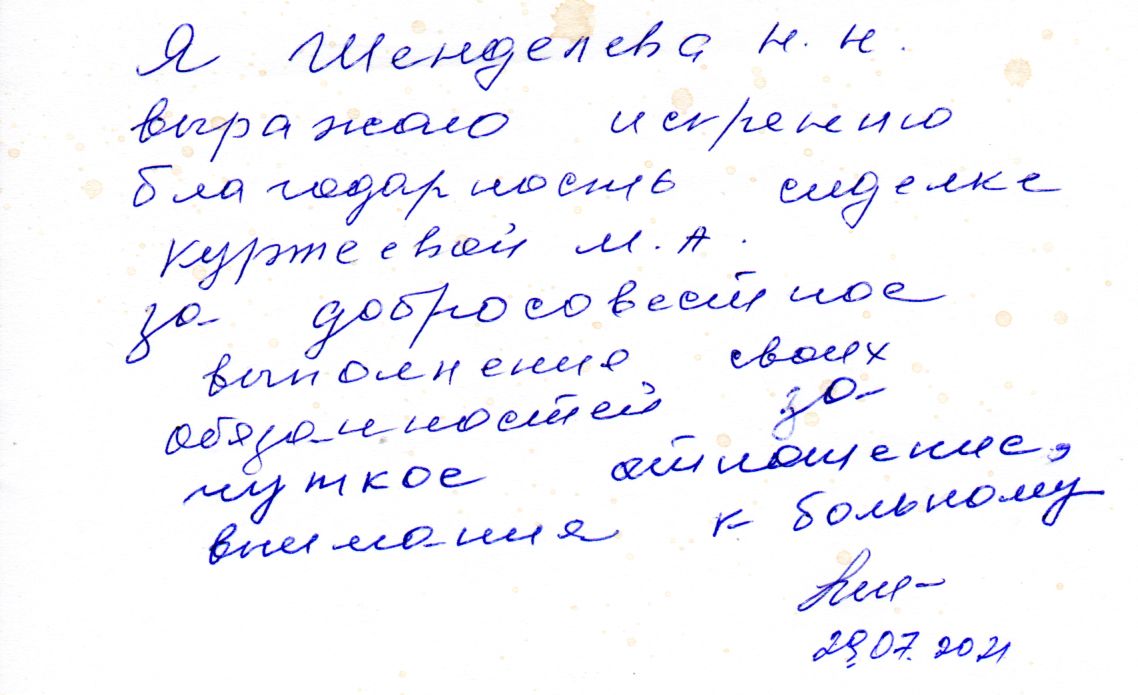 Я Шенделева Н.Н.
выражаю искренню
благодарность сиделке
Куржеевой М.А.
за добросовестное
выполнение своих
обязанностей за
чуткое отношение,
внимания к больному
29.07.2021